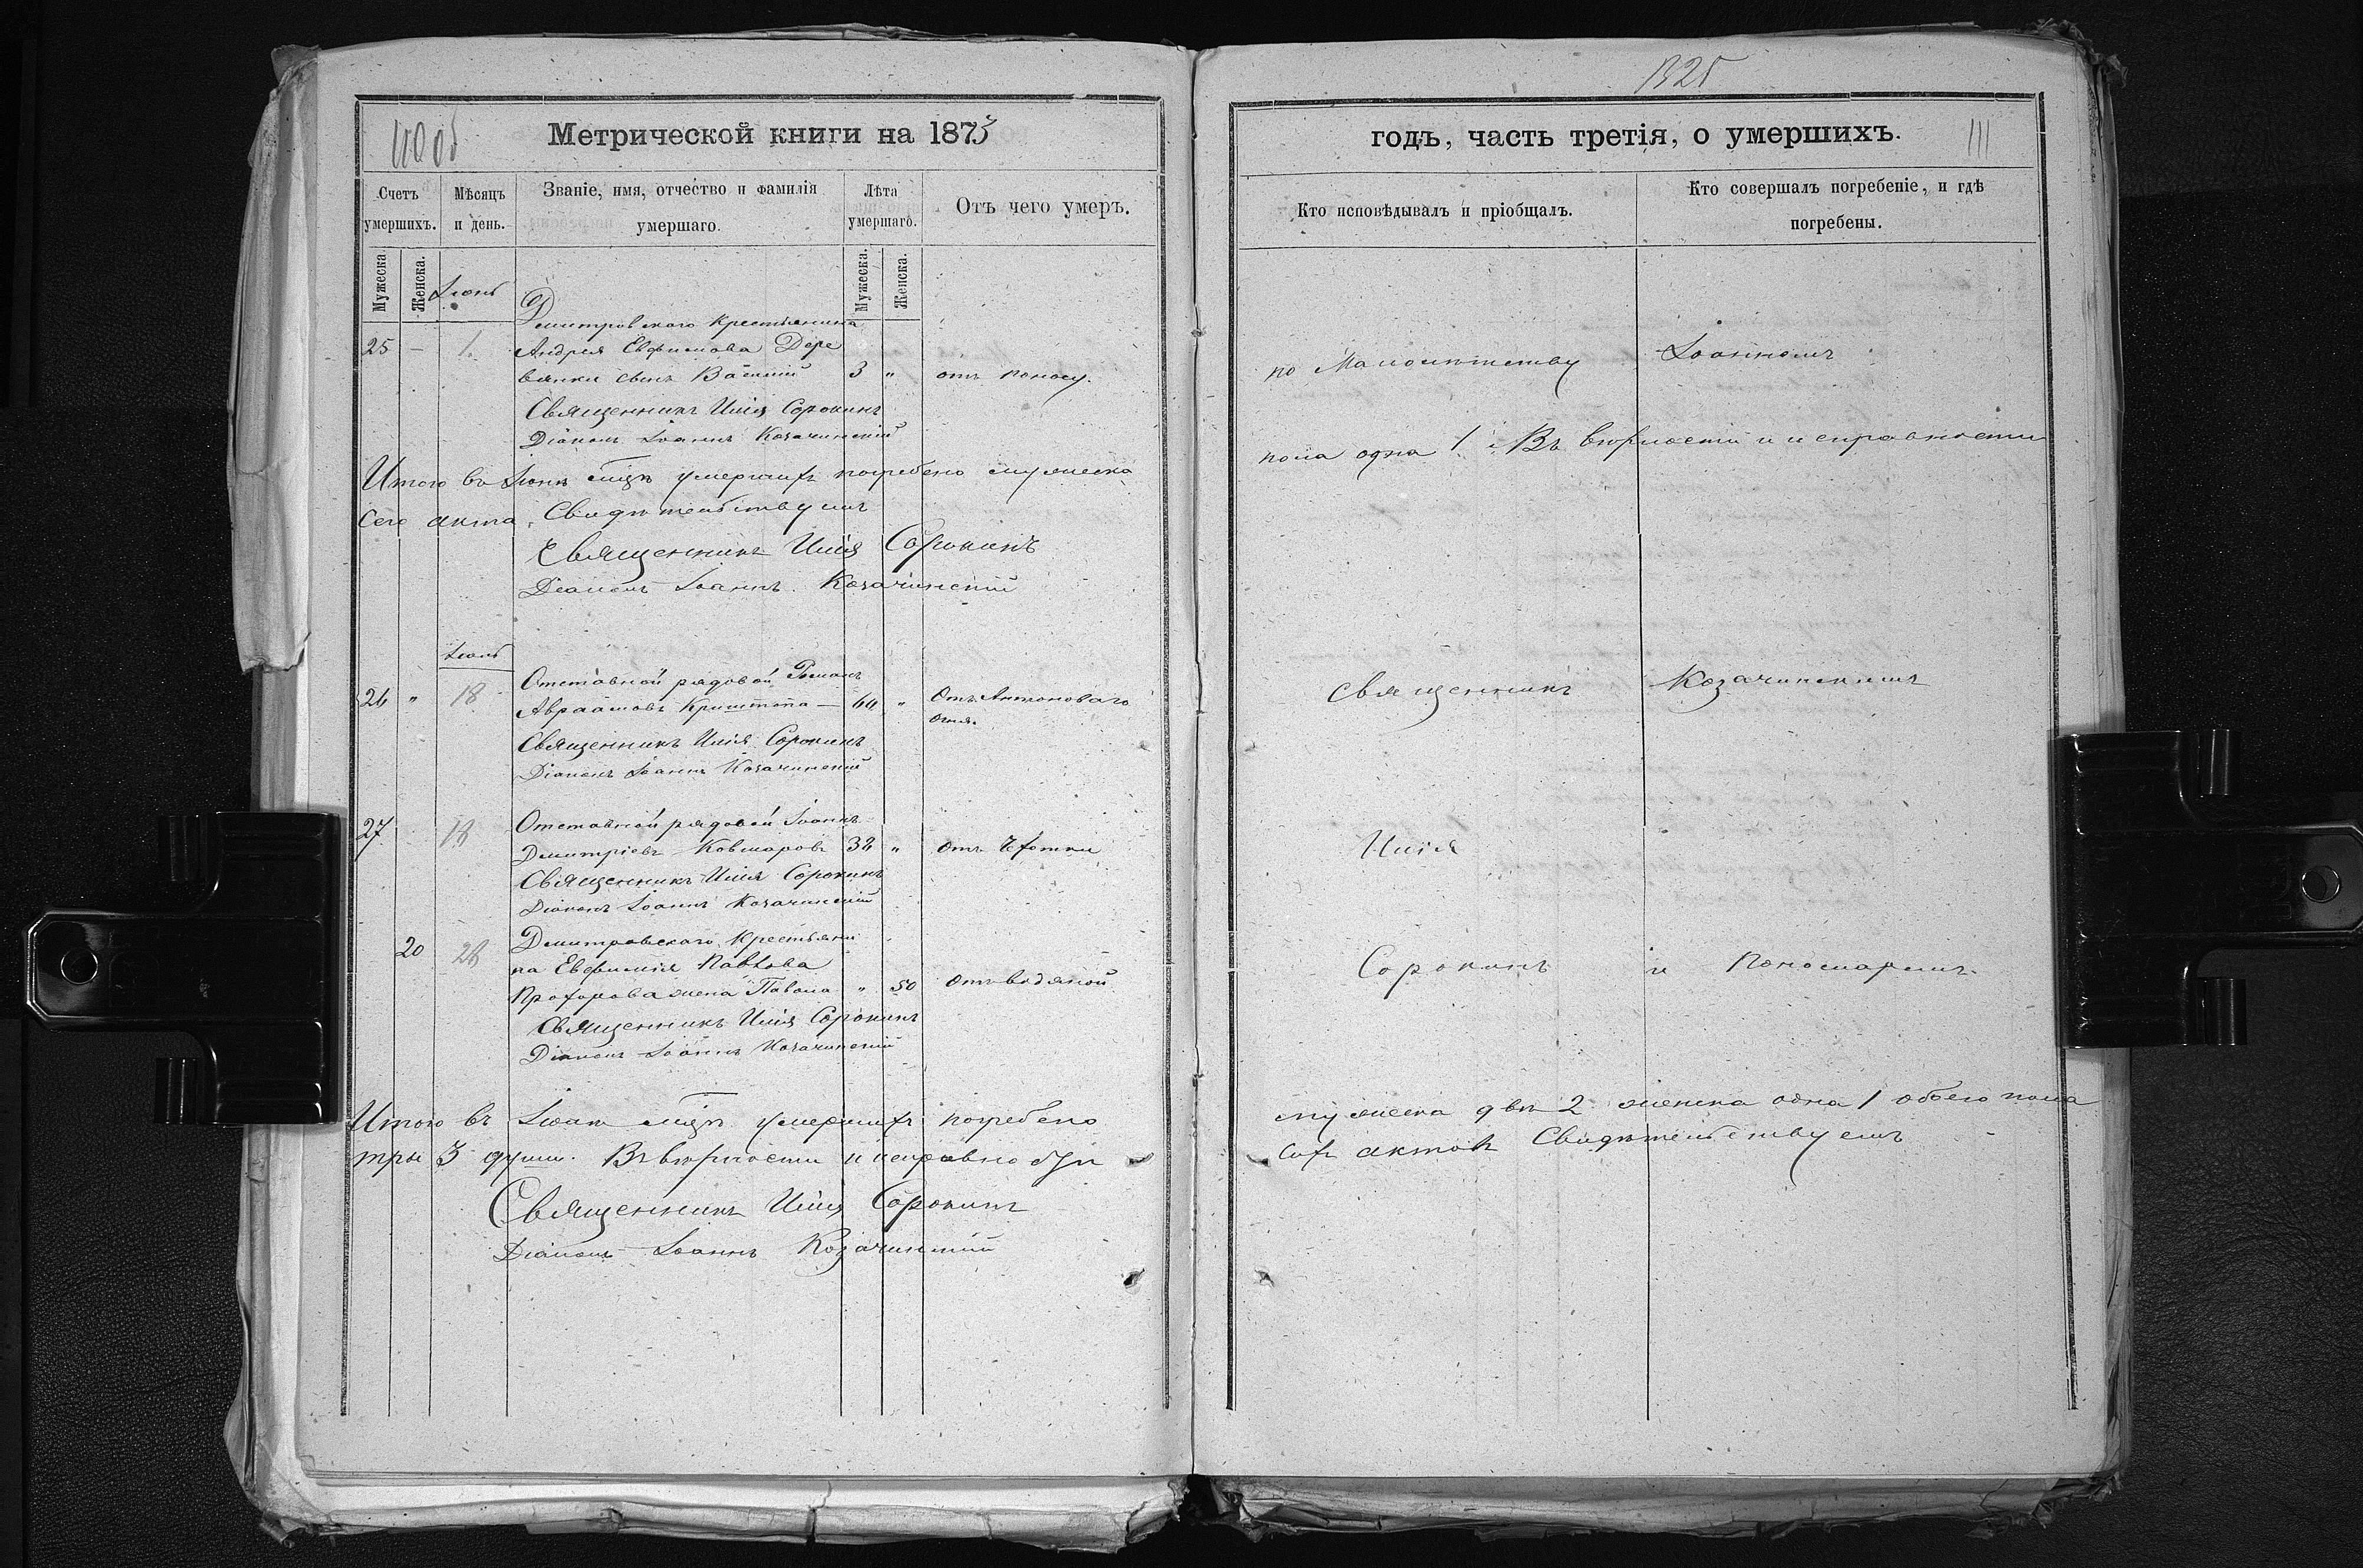 1325
Метрической книги на 1875
годъ, часть третія, о умершихъ.
III
Счетъ умершихъ.
Мѣсяцъ и день.
Званіе, имя, отчество и фамилія умершаго.
Лѣта умершаго.
Отъ чего умеръ.
Кто исповѣдывалъ и пріобщалъ.
Кто совершалъ погребеніе, и гдѣ погребены.
Мужеска
Женска.
Мужеска.
Женска.
Дмитровского Крестьянина
25 — 1. Андрея Евфимова Дере
вянки сынъ Василій 3 " отъ поносу.
по малолѣтству
Іоанномъ
Священникъ Илія Сорокинъ
Діаконъ Іоаннъ Козачинскій
Итого въ мцѣ умершихъ погребено мужеска
пола одна 1 Въ вѣрности и исправности
сего акта, Свидѣтельствуемъ
Священникъ Илія Сорокинъ
Діаконъ Іоаннъ Козачинскій
Отставной рядовой Романъ
26 " 18 Авраамовъ — " Отъ Антоноваго
огня.
Священникъ
Козачинскимъ
Священникъ Илія Сорокинъ
Діаконъ Іоаннъ Козачинскій
27 18 Отставной рядовой Іоаннъ
Дмитріевъ " Отъ Чахотки
Илія
Священникъ Илія Сорокинъ
Діаконъ Іоаннъ Козачинскій
20 28 Дмитровскаго Крестьяни
на Евфимія Павлова
Прохорова жена " 50 Отъ водяной
Сорокинъ
и Пономаремъ.
Священникъ Илія Сорокинъ
Діаконъ Іоаннъ Козачинскій
Итого въ мцѣ умершихъ погребено
мужеска два 2 женска одна 1 обоего пола
три 3 души. Въ вѣрности и исправности
сихъ актовъ Свидѣтельствуемъ
Священникъ Илія Сорокинъ
Діаконъ Іоаннъ Козачинскій